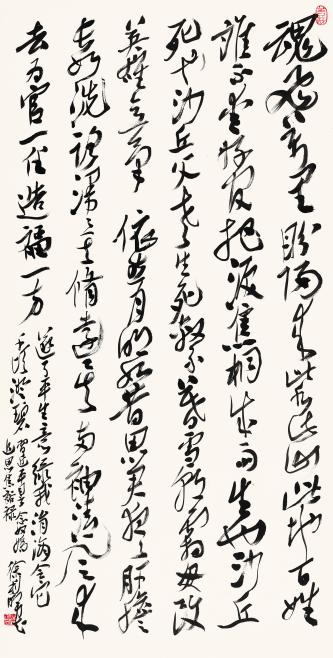 魂飛万里盼歸来此水此山此地百姓
誰不愛好官把淚焦桐成雨生也沙丘
死也沙丘父老生死系暮雪朝霜毋改
英雄意氣依然月明如昔思君夜夜肝膽
長如洗路漫漫其修遠矣兩袖清風来
去为官一任造福一方
遂了平生意綠我涓滴會它
千頃澄碧 習近平 念奴嬌
追思焦裕祿